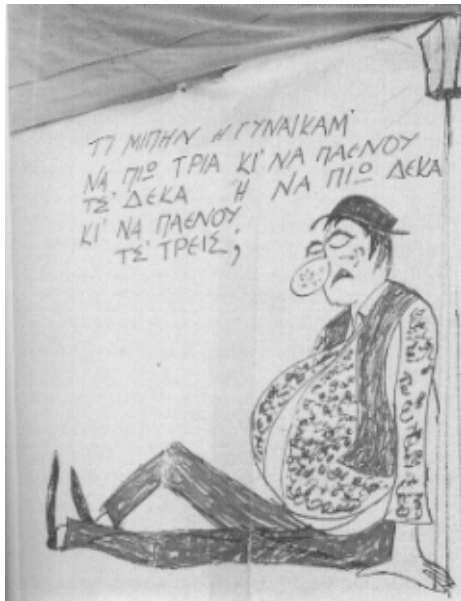 ΤΙ ΜΙΠΗΝ Η ΓΥΝΑΙΚΑΜ'
ΝΑ ΠΙΩ ΤΡΙΑ ΚΙ' ΝΑ ΠΑΕΝΟΥ
ΤΣ' ΔΕΚΑ Η ΝΑ ΠΙΩ ΔΕΚΑ
ΚΙ' ΝΑ ΠΑΕΝΟΥ
ΤΣ' ΤΡΕΙΣ;